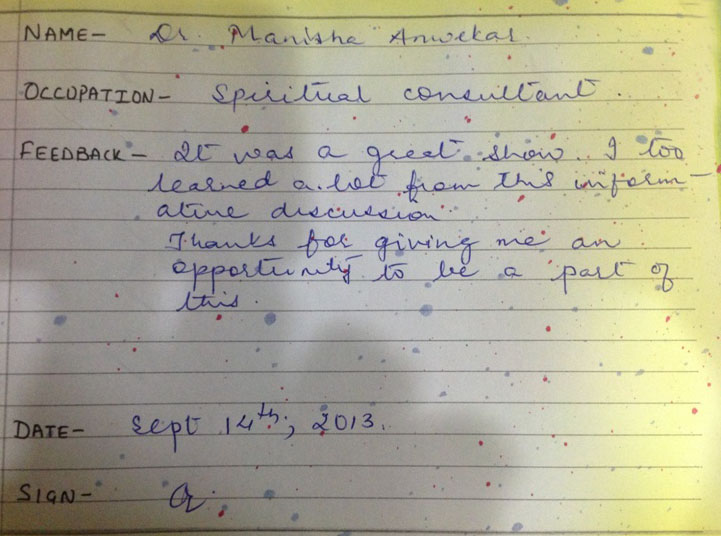 NAME- Dr. Manisha Anwekar.
OCCUPATION- Spiritual consultant.
FEEDBACK- It was a great show. I too
learned a lot from this inform-
ative discussion.
Thanks for giving me an
opportunity to be a part of
this.
DATE- Sept 14th, 2013.
SIGN-